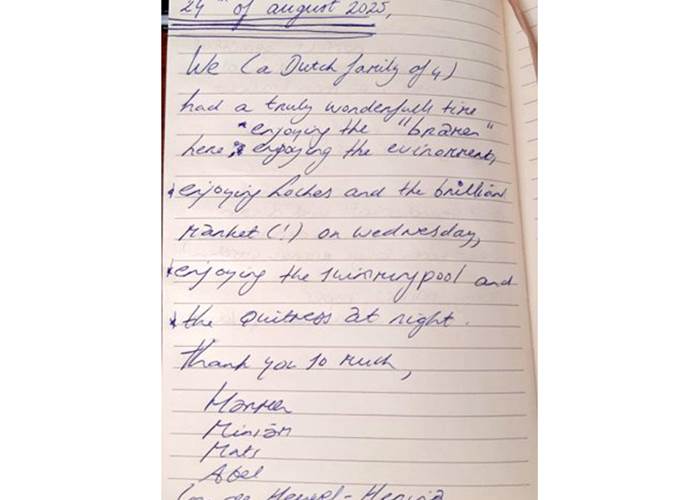 24th of august 2025,
We (a Dutch family of 4)
had a truly wonderfull time
* enjoying the "bramen"
here, * enjoying the evironment,
* enjoying Loches and the brilliant
market (!) on wednesday,
* enjoying the swimmingpool and
* the quitness at night.
Thank you so much,
Miriam
Mats
Abel